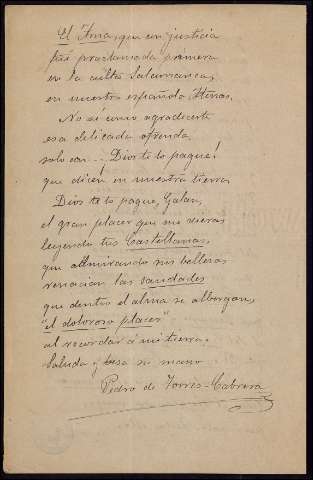 El Ama, que en justicia
fué proclamada primera
en la culta Salamanca,
en nuestra española Atenas.
No sé como agradecerte
esa delicada ofrenda,
solo con... Dios te lo pague!
que dicen en nuestra tierra.
Dios te lo pague, Galan,
el gran placer que me dieras
leyendo tus Castellanas,
que admirando sus bellezas
renacian las saudades
que dentro el alma se albergan,
"el doloroso placer"
al recordar á mi tierra.
Saluda y besa su mano
Pedro de Torres-Cabrera